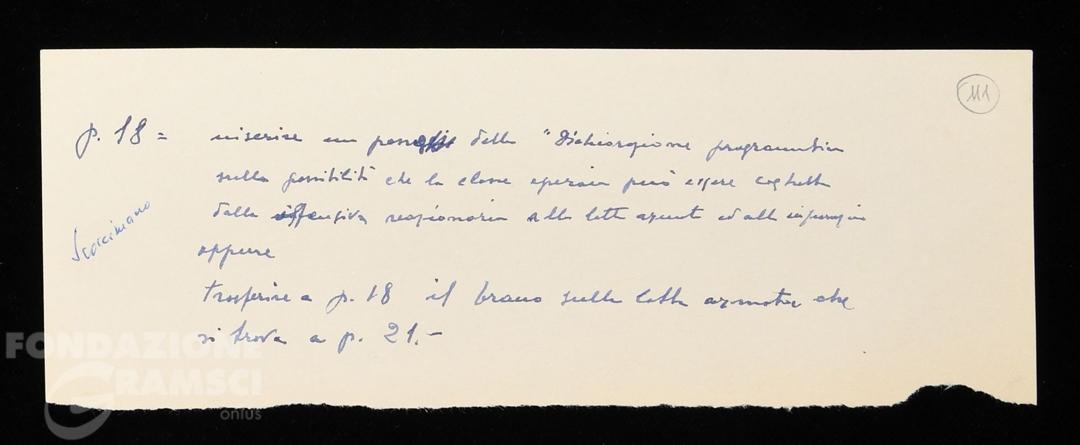 111
p. 18 = inserire un passo della "Dichiarazione programmatica
sulla possibilità che la classe operaia può essere costretta
dalla offensiva reazionaria alla lotta armata ed alla insurrezione
oppure
trasferire a p. 18 il brano sulla lotta armata che
si trova a p. 21.-
Scoccimarro
FONDAZIONE
GRAMSCI
onlus